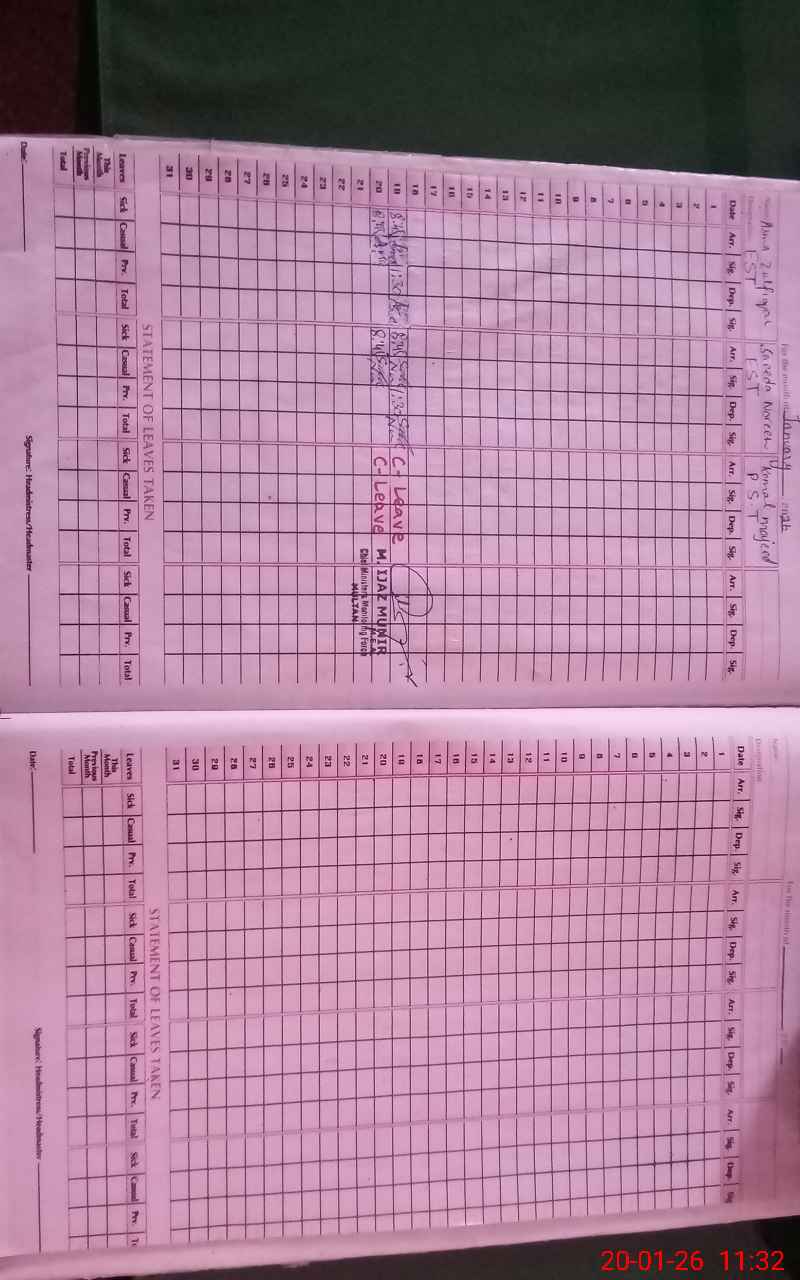 For the month of January 2026
Asma Zulfiqar Saeeda Noreen Komal majeed
EST EST P.S.T
Date Arr. Sig. Dep. Sig. Arr. Sig. Dep. Sig. Arr. Sig. Dep. Sig. Arr. Sig. Dep. Sig.
1
2
3
4
5
6
7
8
9
10
11
12
13
14
15
16
17
18
19 8:45 1:30 8:45 1:30 C-Leave
20 8:45 8:45 C-Leave
M. IJAZ MUNIR
M.E.A
Chief Minister's Monitoring Force
MULTAN
21
22
23
24
25
26
27
28
29
30
31
STATEMENT OF LEAVES TAKEN
Leaves Sick Casual Prv. Total Sick Casual Prv. Total Sick Casual Prv. Total Sick Casual Prv. Total
This Month
Previous Month
Total
Date: Signature: Headmistress/Headmaster
For the month of
Name
Designation
Date Arr. Sig. Dep. Sig. Arr. Sig. Dep. Sig. Arr. Sig. Dep. Sig. Arr. Sig. Dep. Sig
1
2
3
4
5
6
7
8
9
10
11
12
13
14
15
16
17
18
19
20
21
22
23
24
25
26
27
28
29
30
31
STATEMENT OF LEAVES TAKEN
Leaves Sick Casual Prv. Total Sick Casual Prv. Total Sick Casual Prv. Total Sick Casual Prv.
This Month
Previous Month
Total
Date: Signature: Headmistress/Headmaster
20-01-26 11:32